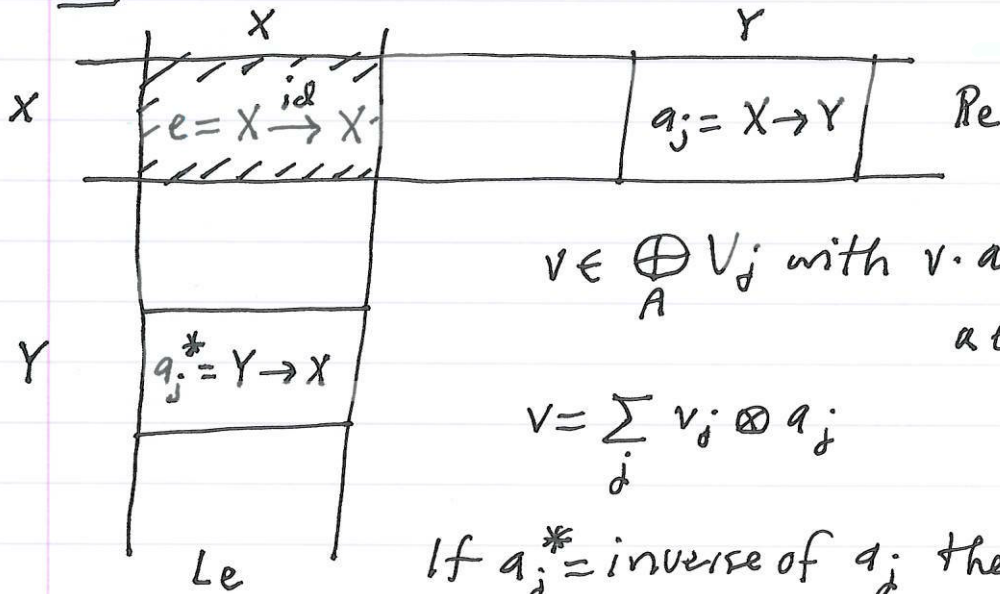 X Y
X e = X —id→ X a_j = X → Y Re
v ∈ ⊕_A V_j with v · a
Y a_j^* = Y → X at
v = Σ_j v_j ⊗ a_j
Le If a_j^* = inverse of a_j the